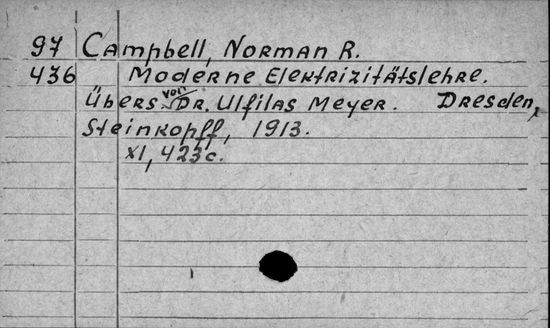 97 Campbell, Norman R.
436 Moderne Elektrizitätslehre.
Übers. von Dr. Ulfilas Meyer. Dresden,
Steinkopff, 1913.
XI, 423 c.